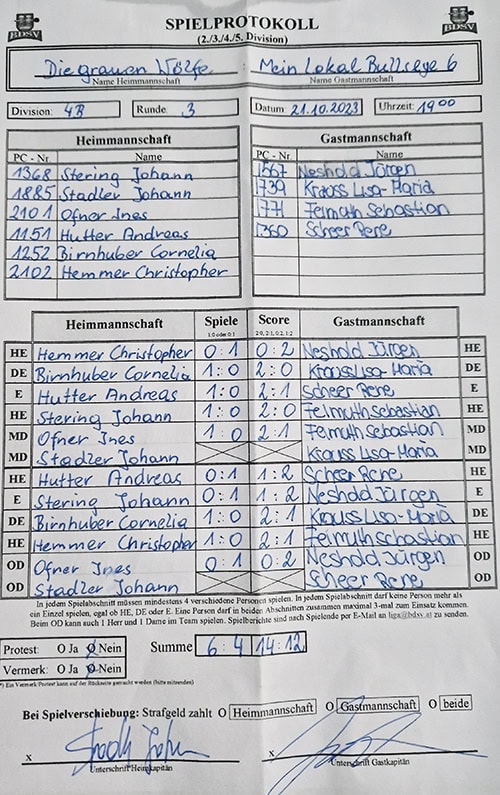 BDSV SPIELPROTOKOLL BDSV
(2./3./4./5. Division)
Die grauen Wölfe : Mein Lokal Bullseye 6
Name Heimmannschaft Name Gastmannschaft
Division: 4B Runde: 3 Datum: 21.10.2023 Uhrzeit: 19 00
Heimmannschaft
PC - Nr. Name
1368 Stering Johann
1885 Stadler Johann
2101 Ofner Ines
1151 Hutter Andreas
1252 Birnhuber Cornelia
2102 Hemmer Christopher
Gastmannschaft
PC - Nr. Name
1567 Neshold Jürgen
1739 Krauss Lisa-Maria
1771 Feimuth Sebastian
1360 Scheer Rene
Heimmannschaft Spiele Score Gastmannschaft
1:0 oder 0:1 2:0, 2:1, 0:2, 1:2
HE Hemmer Christopher 0:1 0:2 Neshold Jürgen HE
DE Birnhuber Cornelia 1:0 2:0 Krauss Lisa-Maria DE
E Hutter Andreas 1:0 2:1 Scheer Rene E
HE Stering Johann 1:0 2:0 Feimuth Sebastian HE
MD Ofner Ines 1:0 2:1 Feimuth Sebastian MD
MD Stadler Johann Krauss Lisa-Maria MD
HE Hutter Andreas 0:1 1:2 Scheer Rene HE
E Stering Johann 0:1 1:2 Neshold Jürgen E
DE Birnhuber Cornelia 1:0 2:1 Krauss Lisa-Maria DE
HE Hemmer Christopher 1:0 2:1 Feimuth Sebastian HE
OD Ofner Ines 0:1 0:2 Neshold Jürgen OD
OD Stadler Johann Scheer Rene OD
In jedem Spielabschnitt müssen mindestens 4 verschiedene Personen spielen. In jedem Spielabschnitt darf keine Person mehr als
ein Einzel spielen, egal ob HE, DE oder E. Eine Person darf in beiden Abschnitten zusammen maximal 3-mal zum Einsatz kommen.
Beim OD kann auch 1 Herr und 1 Dame im Team spielen. Spielberichte sind nach Spielende per E-Mail an liga@bdsv.at zu senden.
Protest: O Ja O Nein Summe 6:4 14:12
Vermerk: O Ja O Nein
*) Ein Vermerk/Protest kann auf der Rückseite gemacht werden (bitte mitsenden)
Bei Spielverschiebung: Strafgeld zahlt O Heimmannschaft O Gastmannschaft O beide
x x
Unterschrift Heimkapitän Unterschrift Gastkapitän